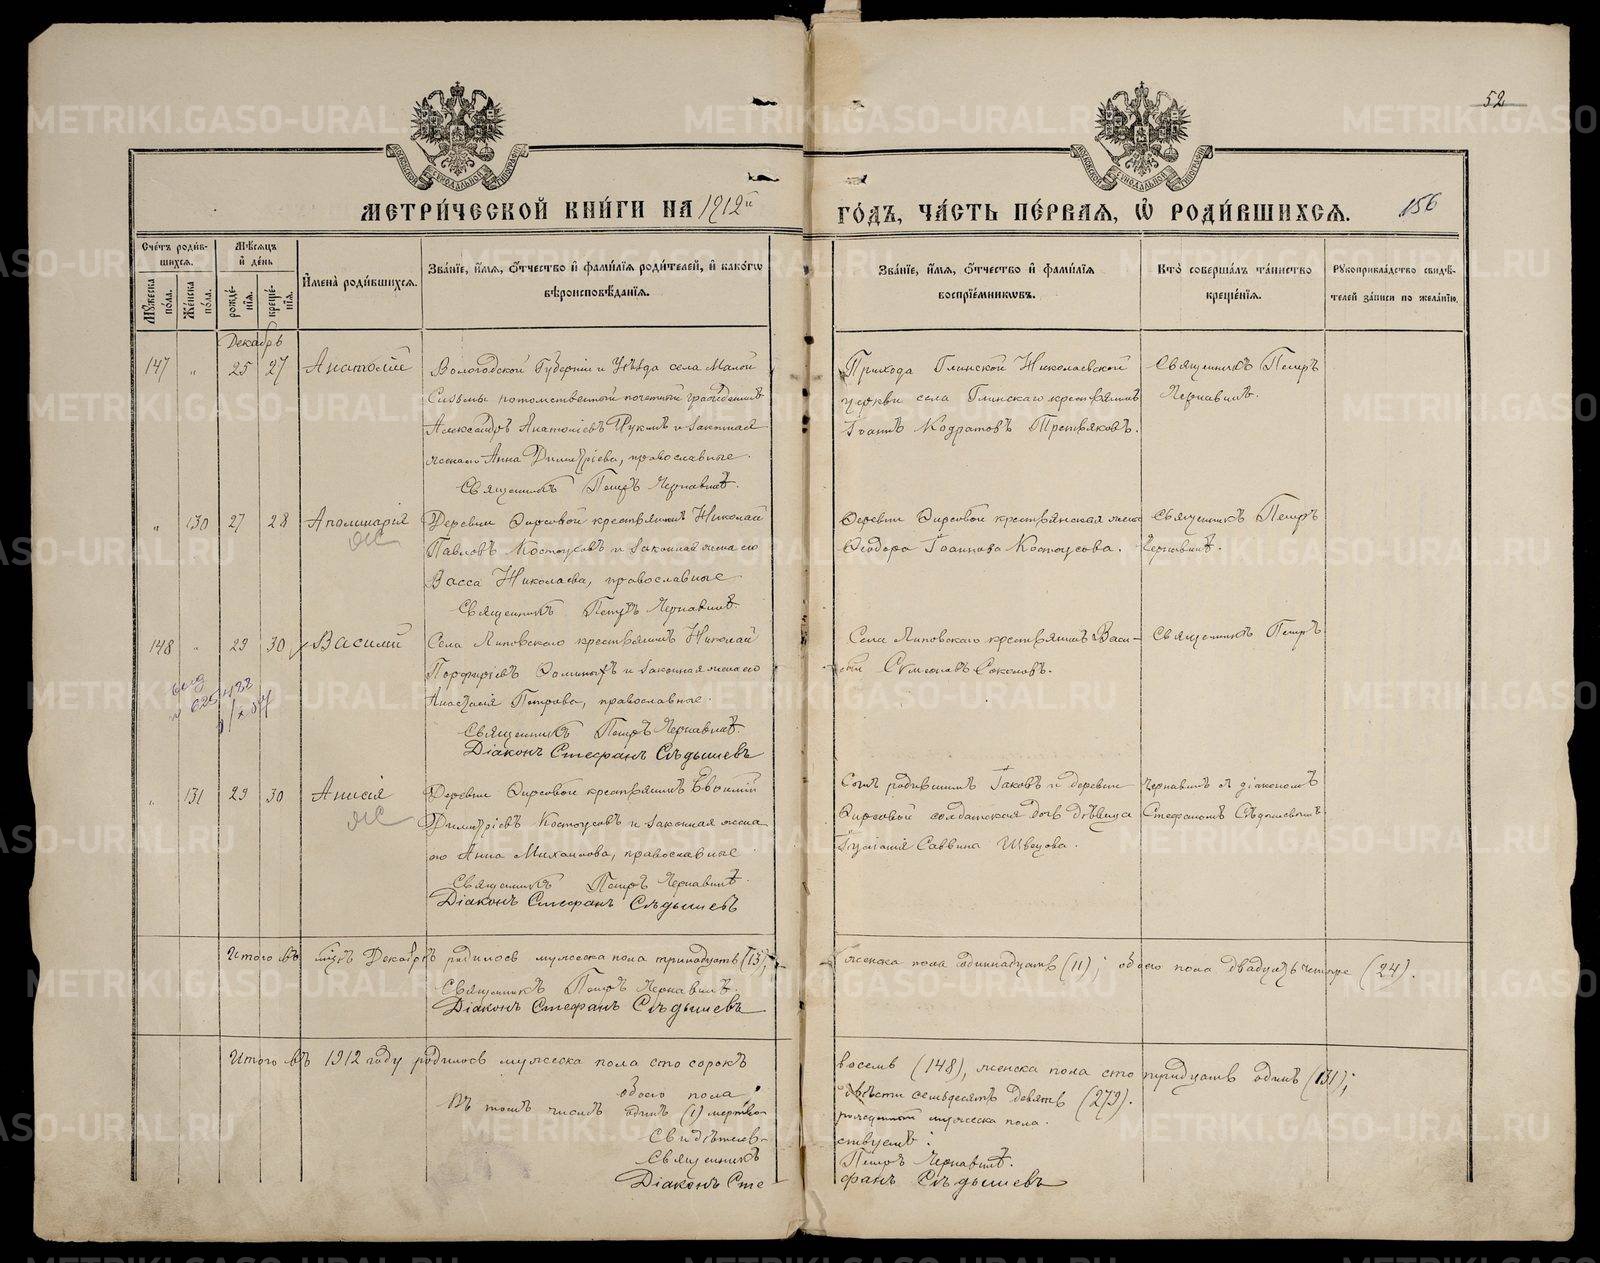 52
МЕТРИЧЕСКОЙ КНИГИ НА 1912й
ГОДЪ, ЧАСТЬ ПЕРВАЯ, Ѡ РОДИВШИХСЯ.
156
Счетъ родившихся.
Мужеска пола.
Женска пола.
Мѣсяцъ и день
рожденія.
крещенія.
Имена родившихся.
Званіе, имя, отчество и фамилія родителей, и какогѡ
вѣроисповѣданія.
Званіе, имя, отчество и фамилія
воспріемниковъ.
Кто совершалъ таинство
крещенія.
Рукоприкладство свидѣ-
телей записи по желанію.
Декабрь
147 " 25 27 Анатолій
Вологодской Губерніи и Уѣзда села Малой
потомственный почетный гражданинъ
Александръ Анатоліевъ и законная
жена его Анна Димитріева, православные.
Священникъ Петръ Чернавинъ.
Прихода Глинской Николаевской
церкви села Глинскаго крестьянинъ
Іоаннъ Кодратовъ Третьяковъ.
Священникъ Петръ
Чернавинъ.
" 130 27 28 Аполинарія
Деревни Фирсовой крестьянинъ Николай
Павловъ Костоусовъ и законная жена его
Васса Николаева, православные
Священникъ Петръ Чернавинъ.
Деревни Фирсовой крестьянская жена
Ѳеодора Іоаннова Костоусова.
Священникъ Петръ
Чернавинъ.
148 " 29 30 Василій
Села Липовскаго крестьянинъ Николай
Порфиріевъ Ѳоминыхъ и законная жена его
Анастасія Петрова, православные.
Священникъ Петръ Чернавинъ.
Діаконъ Стефанъ Слѣдышевъ
Села Липовскаго крестьянинъ Васи-
лій Соколовъ.
Священникъ Петръ
" 131 29 30 Анисія
Деревни Фирсовой крестьянинъ Евѳимій
Димитріевъ Костоусовъ и законная жена
его Анна Михаилова, православные
Священникъ Петръ Чернавинъ.
Діаконъ Стефанъ Слѣдышевъ
Іаковъ и деревни
Фирсовой солдатская дочь дѣвица
Іуліанія Саввина Швецова.
Чернавинъ съ діакономъ
Стефаномъ Слѣдышевымъ
Итого въ мцѣ Декабрѣ родилось мужеска пола тринадцать (13),
женска пола одиннадцать (11); обоего пола двадцать четыре (24).
Священникъ Петръ Чернавинъ.
Діаконъ Стефанъ Слѣдышевъ
Итого въ 1912 году родилось мужеска пола сто сорокъ
восемь (148), женска пола сто тридцать одинъ (131);
обоего пола
двѣсти семьдесятъ девять (279).
Въ томъ числѣ одинъ (1) мертво-
рожденный мужеска пола.
Свидѣтель-
ствуемъ:
Священникъ
Петръ Чернавинъ.
Діаконъ Сте
фанъ Слѣдышевъ
METRIKI.GASO-URAL.RU